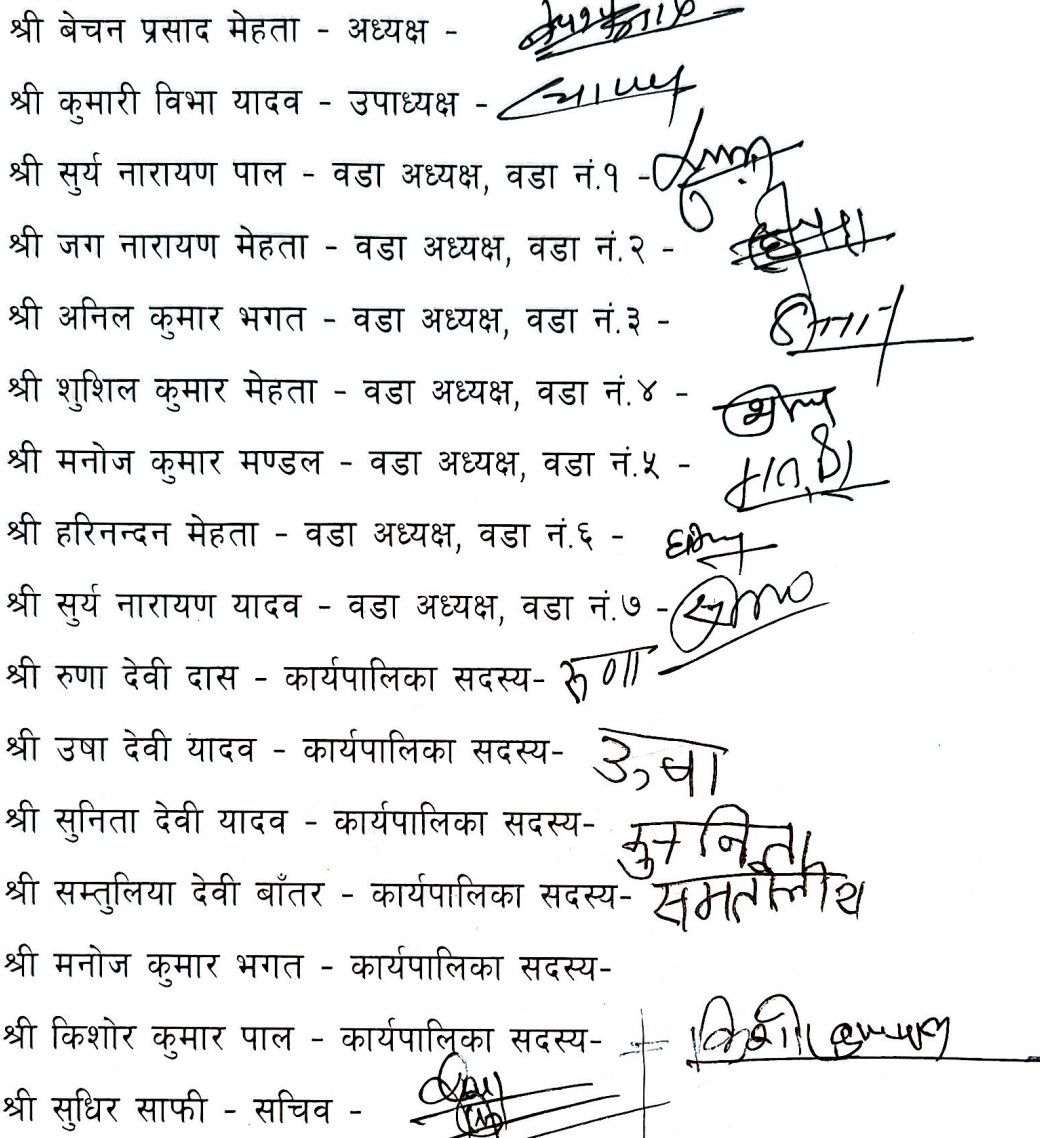 श्री बेचन प्रसाद मेहता - अध्यक्ष -
श्री कुमारी विभा यादव - उपाध्यक्ष -
श्री सुर्य नारायण पाल - वडा अध्यक्ष, वडा नं.१ -
श्री जग नारायण मेहता - वडा अध्यक्ष, वडा नं.२ -
श्री अनिल कुमार भगत - वडा अध्यक्ष, वडा नं.३ -
श्री शुशिल कुमार मेहता - वडा अध्यक्ष, वडा नं.४ -
श्री मनोज कुमार मण्डल - वडा अध्यक्ष, वडा नं.५ -
श्री हरिनन्दन मेहता - वडा अध्यक्ष, वडा नं.६ -
श्री सुर्य नारायण यादव - वडा अध्यक्ष, वडा नं.७ -
श्री रुणा देवी दास - कार्यपालिका सदस्य- रूणा
श्री उषा देवी यादव - कार्यपालिका सदस्य- उषा
श्री सुनिता देवी यादव - कार्यपालिका सदस्य-
श्री सम्तुलिया देवी बाँतर - कार्यपालिका सदस्य-
श्री मनोज कुमार भगत - कार्यपालिका सदस्य-
श्री किशोर कुमार पाल - कार्यपालिका सदस्य-
श्री सुधिर साफी - सचिव -